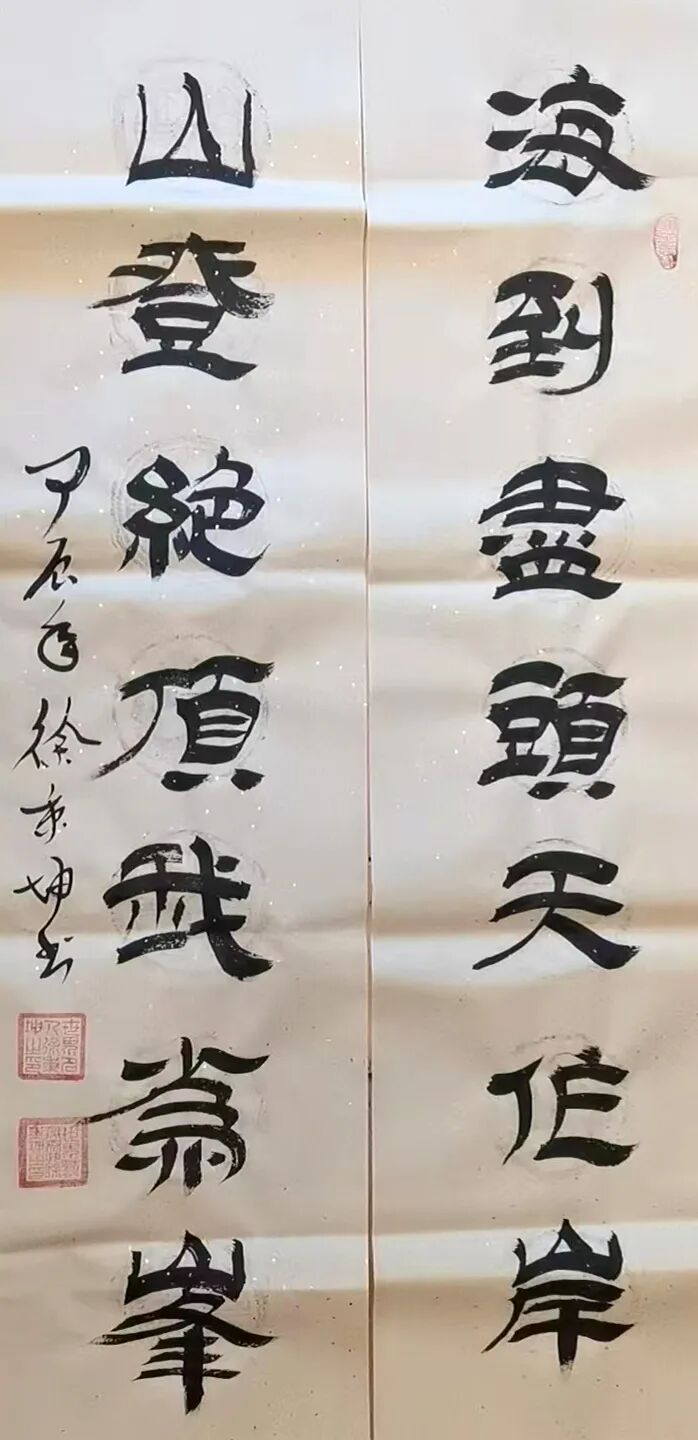 海到盡頭天作岸
山登絕頂我為峯
甲辰年徐秉坤书